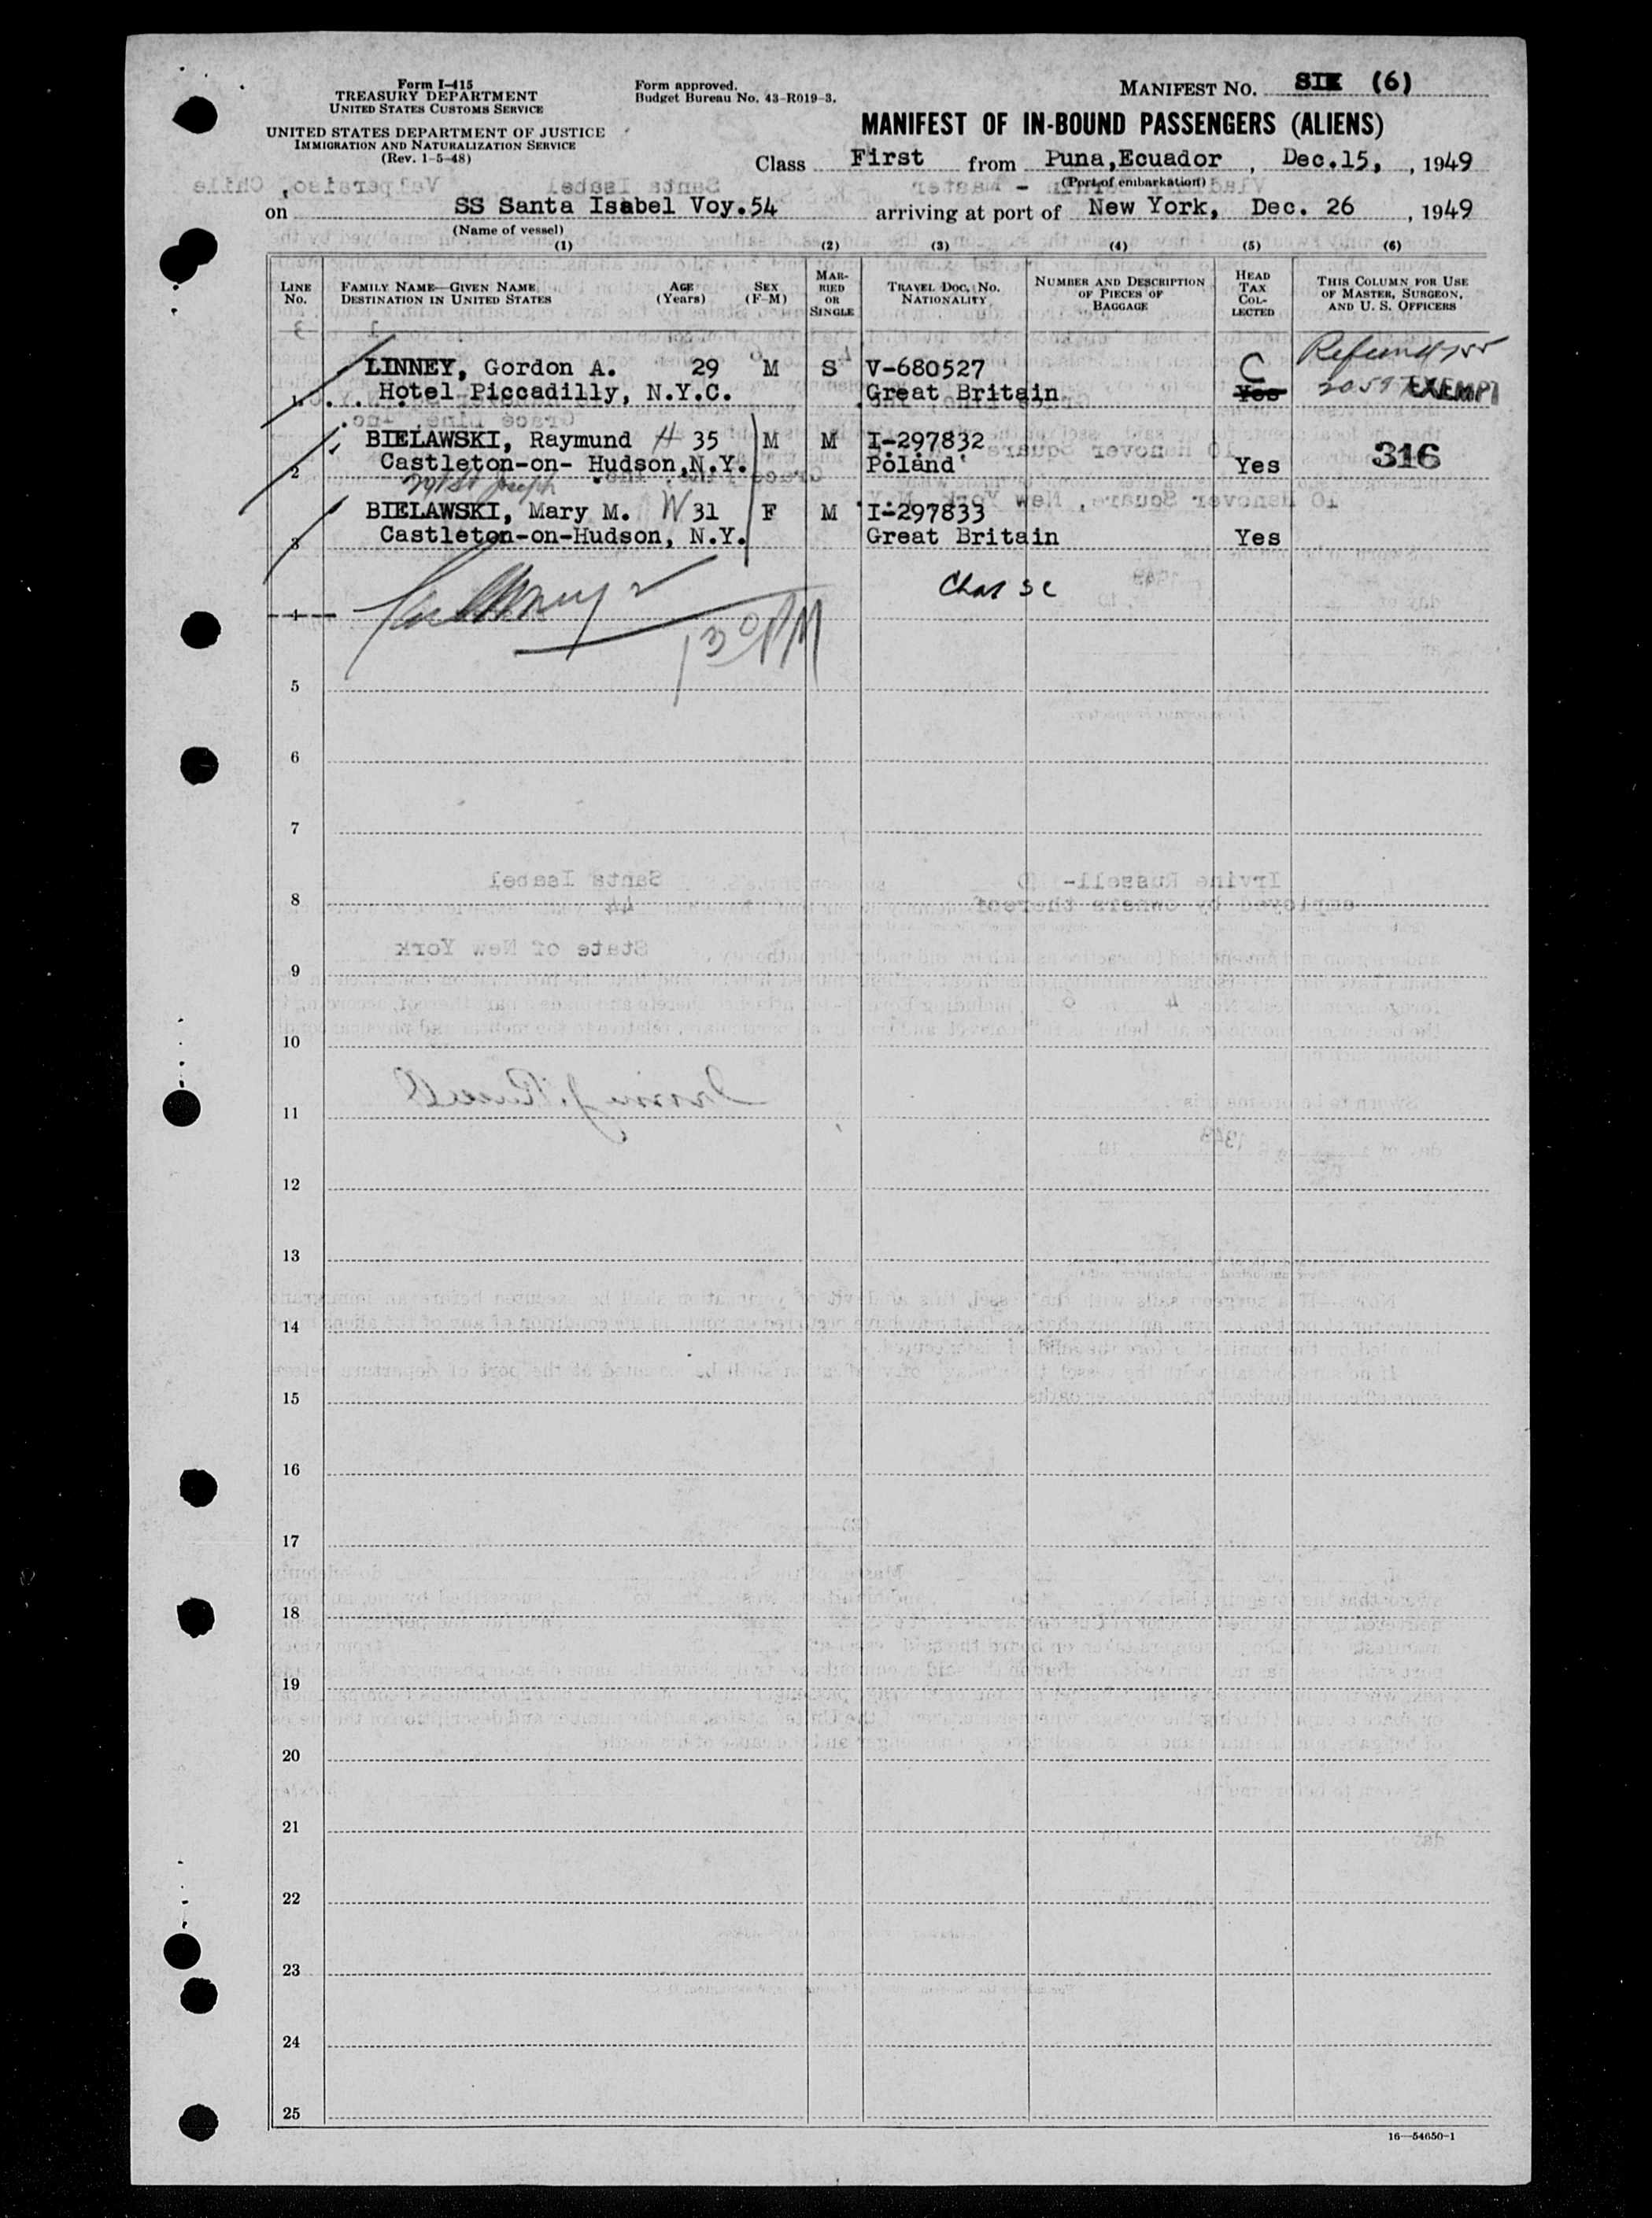 Form I-415
TREASURY DEPARTMENT
UNITED STATES CUSTOMS SERVICE
UNITED STATES DEPARTMENT OF JUSTICE
IMMIGRATION AND NATURALIZATION SERVICE
(Rev. 1-5-48)
Form approved.
Budget Bureau No. 43-R019-3.
MANIFEST NO. (6)
MANIFEST OF IN-BOUND PASSENGERS (ALIENS)
Class First from Puna,Ecuador, Dec.15,, 1949
(Port of embarkation)
on SS Santa Isabel Voy.54 arriving at port of New York, Dec. 26, 1949
(Name of vessel)
(1) (2) (3) (4) (5) (6)
LINE No.
FAMILY NAME—GIVEN NAME
DESTINATION IN UNITED STATES
AGE (Years)
SEX (F-M)
MAR-RIED OR SINGLE
TRAVEL DOC. NO.
NATIONALITY
NUMBER AND DESCRIPTION OF PIECES OF BAGGAGE
HEAD TAX COL-LECTED
THIS COLUMN FOR USE OF MASTER, SURGEON, AND U. S. OFFICERS
LINNEY, Gordon A. 29 M S V-680527 C
1 Hotel Piccadilly, N.Y.C. Great Britain Yes EXEMPT
BIELAWSKI, Raymund H 35 M M I-297832 316
2 Castleton-on- Hudson,N.Y. Poland Yes
BIELAWSKI, Mary M. W 31 F M I-297833
3 Castleton-on-Hudson, N.Y. Great Britain Yes
4
130 PM
5
6
7
8
9
10
11
12
13
14
15
16
17
18
19
20
21
22
23
24
25
16—54650-1